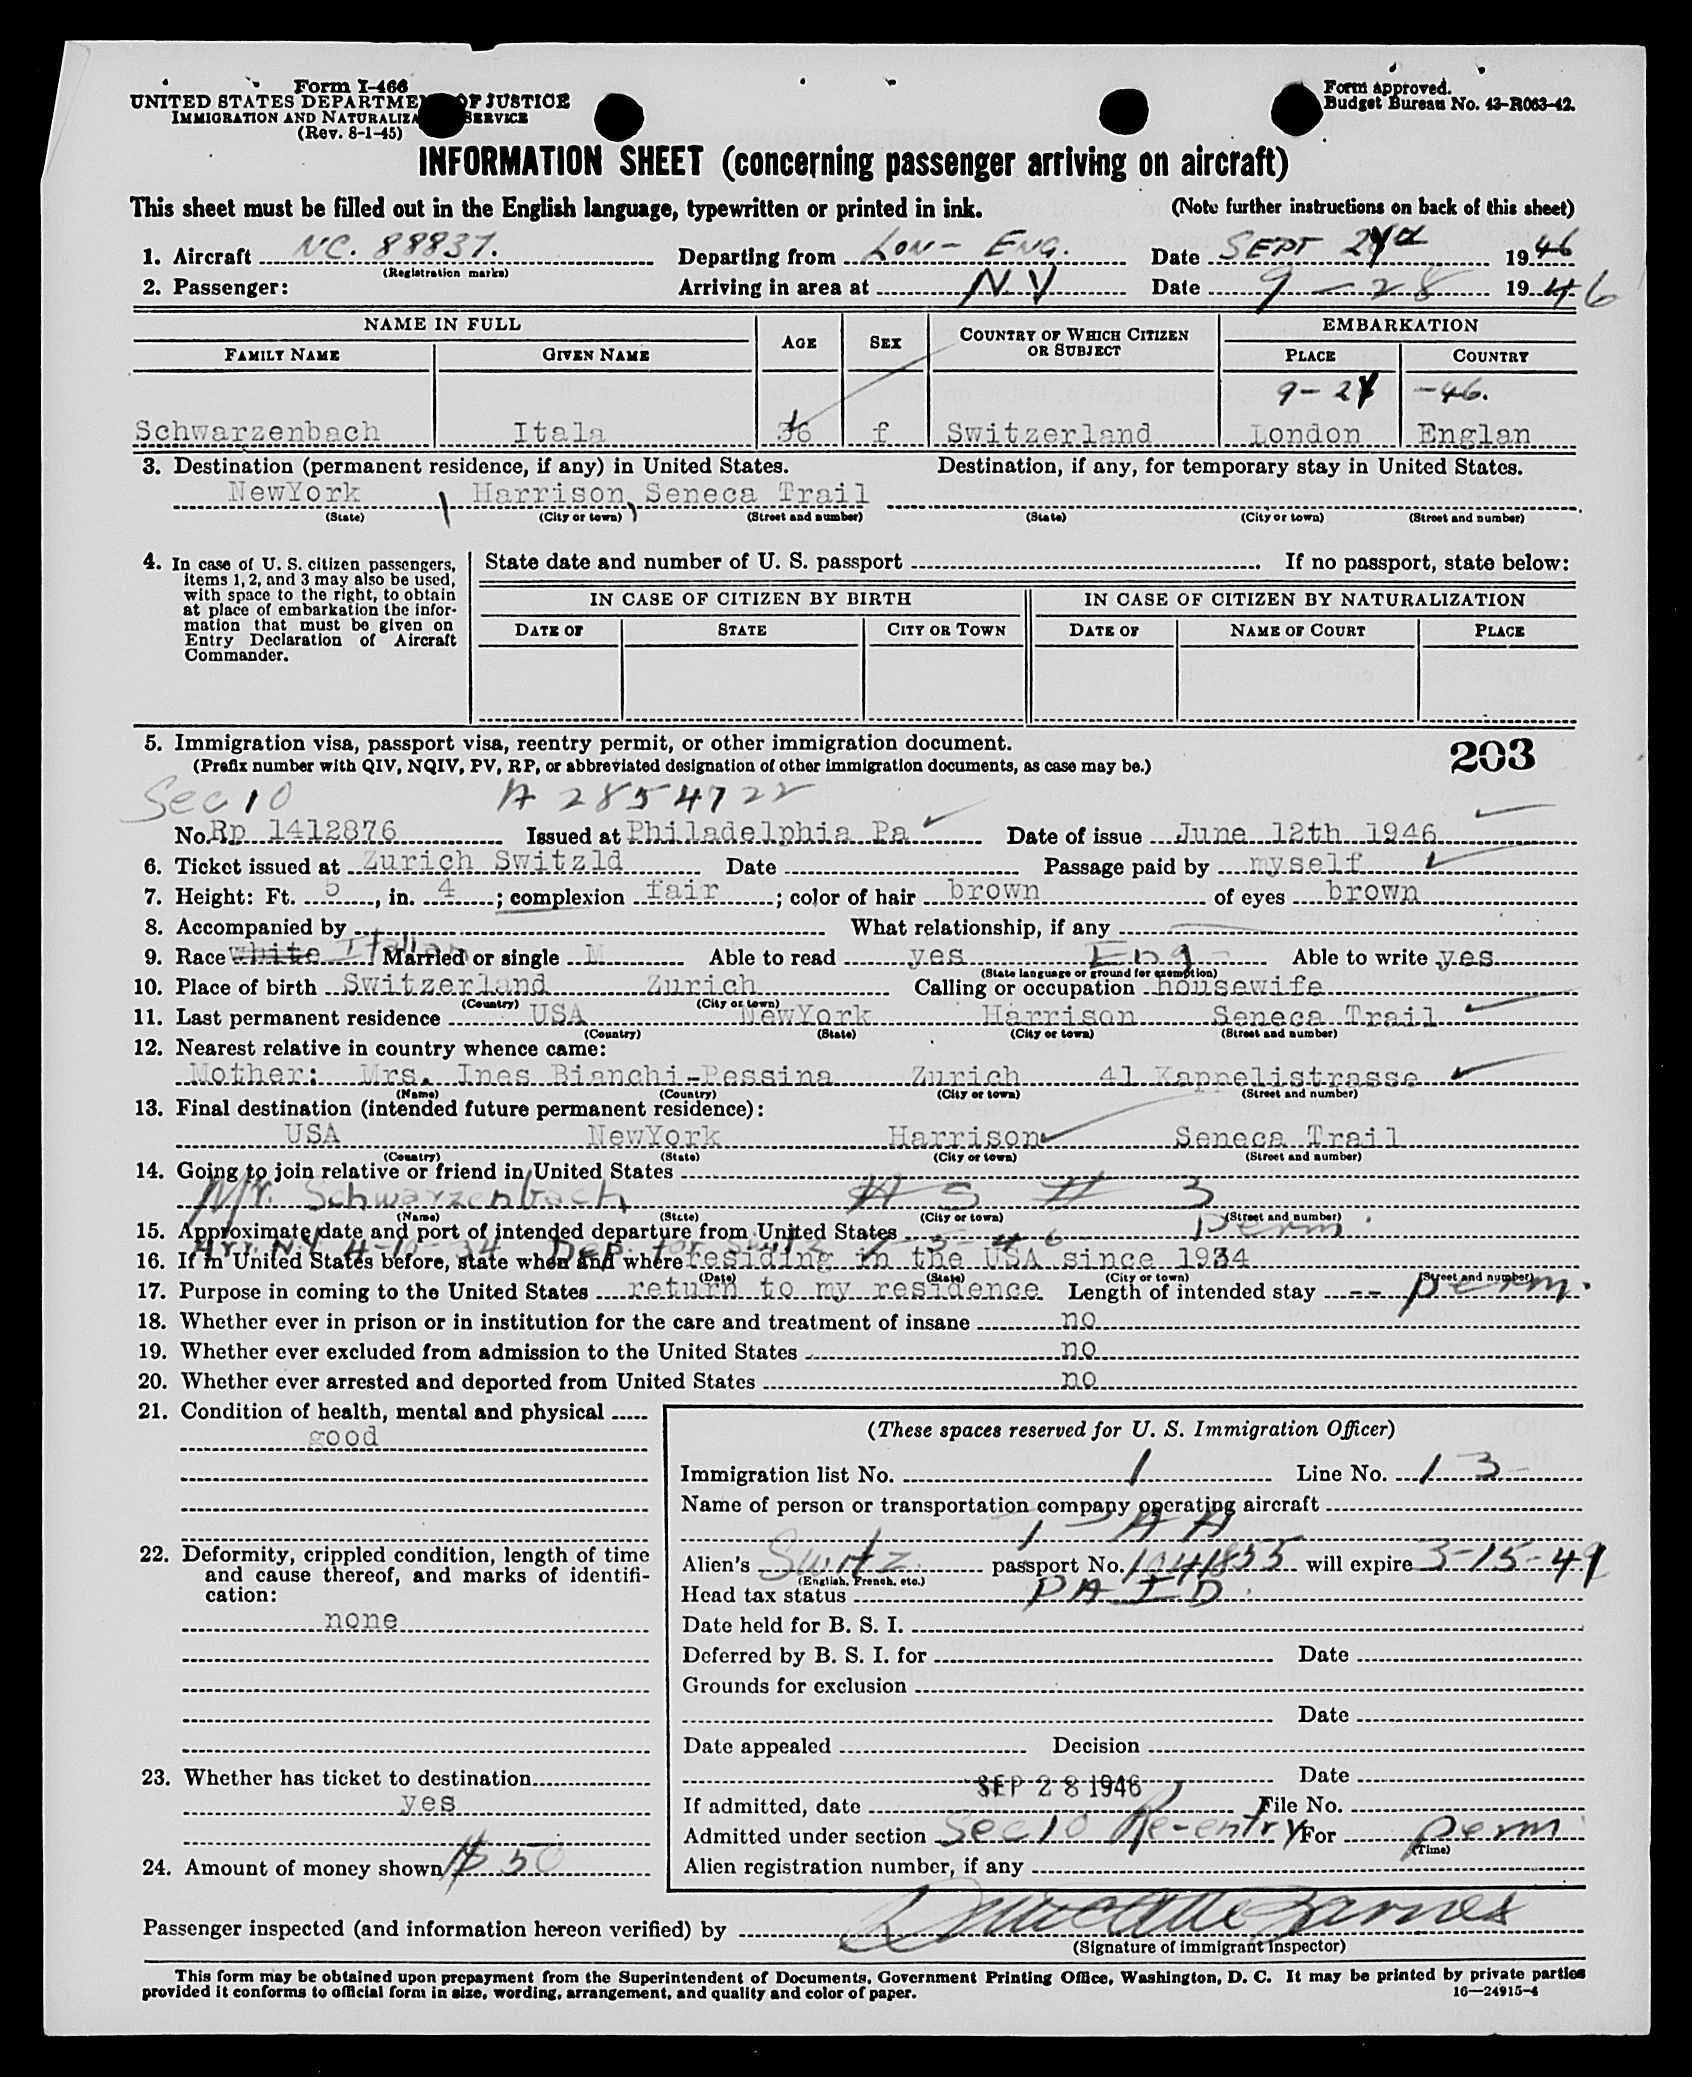 Form I-466
UNITED STATES DEPARTME OF JUSTICE
IMMIGRATION AND NATURALIZA SERVICE
(Rev. 8-1-45)
Form approved.
Budget Bureau No. 43-R063-42.
INFORMATION SHEET (concerning passenger arriving on aircraft)
This sheet must be filled out in the English language, typewritten or printed in ink. (Note further instructions on back of this sheet)
1. Aircraft NC. 88837. Departing from LON- ENG. Date SEPT 1946
(Registration marks)
2. Passenger: Arriving in area at N Y Date 9-28 1946
NAME IN FULL AGE SEX COUNTRY OF WHICH CITIZEN OR SUBJECT EMBARKATION
FAMILY NAME GIVEN NAME PLACE COUNTRY
-46.
Schwarzenbach Itala 36 f Switzerland London Englan
3. Destination (permanent residence, if any) in United States. Destination, if any, for temporary stay in United States.
NewYork Harrison, Seneca Trail
(State) (City or town) (Street and number) (State) (City or town) (Street and number)
4. In case of U. S. citizen passengers, items 1, 2, and 3 may also be used, with space to the right, to obtain at place of embarkation the information that must be given on Entry Declaration of Aircraft Commander.
State date and number of U. S. passport If no passport, state below:
IN CASE OF CITIZEN BY BIRTH IN CASE OF CITIZEN BY NATURALIZATION
DATE OF STATE CITY OR TOWN DATE OF NAME OF COURT PLACE
5. Immigration visa, passport visa, reentry permit, or other immigration document.
(Prefix number with QIV, NQIV, PV, RP, or abbreviated designation of other immigration documents, as case may be.)
203
Sec 10 A 2854722
No. Rp 1412876 Issued at Philadelphia Pa Date of issue June 12th 1946
6. Ticket issued at Zurich Switzld Date Passage paid by myself
7. Height: Ft. 5, in. 4; complexion fair; color of hair brown of eyes brown
8. Accompanied by What relationship, if any
9. Race white Italian Married or single M Able to read yes Eng Able to write yes
(State language or ground for exemption)
10. Place of birth Switzerland Zurich Calling or occupation housewife
(Country) (City or town)
11. Last permanent residence USA NewYork Harrison Seneca Trail
(Country) (State) (City or town) (Street and number)
12. Nearest relative in country whence came:
Mother: Mrs. Ines Bianchi-Pessina Zurich 41 Kappelistrasse
(Name) (Country) (City or town) (Street and number)
13. Final destination (intended future permanent residence):
USA NewYork Harrison Seneca Trail
(Country) (State) (City or town) (Street and number)
14. Going to join relative or friend in United States
Mr. Schwarzenbach # 3
(Name) (State) (City or town) (Street and number)
15. Approximate date and port of intended departure from United States Perm
Arr. N.Y. 4-10-34 Dep. for Switz 7-5-46
16. If in United States before, state when and where residing in the USA since 1934
(Date) (State) (City or town) (Street and number)
17. Purpose in coming to the United States return to my residence Length of intended stay -- perm.
18. Whether ever in prison or in institution for the care and treatment of insane no
19. Whether ever excluded from admission to the United States no
20. Whether ever arrested and deported from United States no
21. Condition of health, mental and physical
good
22. Deformity, crippled condition, length of time and cause thereof, and marks of identification:
none
23. Whether has ticket to destination
yes
24. Amount of money shown $50
(These spaces reserved for U. S. Immigration Officer)
Immigration list No. 1 Line No. 13
Name of person or transportation company operating aircraft
P A A
Alien's Switz passport No. 1041855 will expire 3-15-49
(English, French, etc.)
Head tax status PAID
Date held for B. S. I.
Deferred by B. S. I. for Date
Grounds for exclusion
Date
Date appealed Decision
Date
If admitted, date SEP 28 1946 File No.
Admitted under section Sec 10 Re-entry For perm
(Time)
Alien registration number, if any
Passenger inspected (and information hereon verified) by Barnes
(Signature of immigrant inspector)
This form may be obtained upon prepayment from the Superintendent of Documents, Government Printing Office, Washington, D. C. It may be printed by private parties
provided it conforms to official form in size, wording, arrangement, and quality and color of paper. 16—24915-4